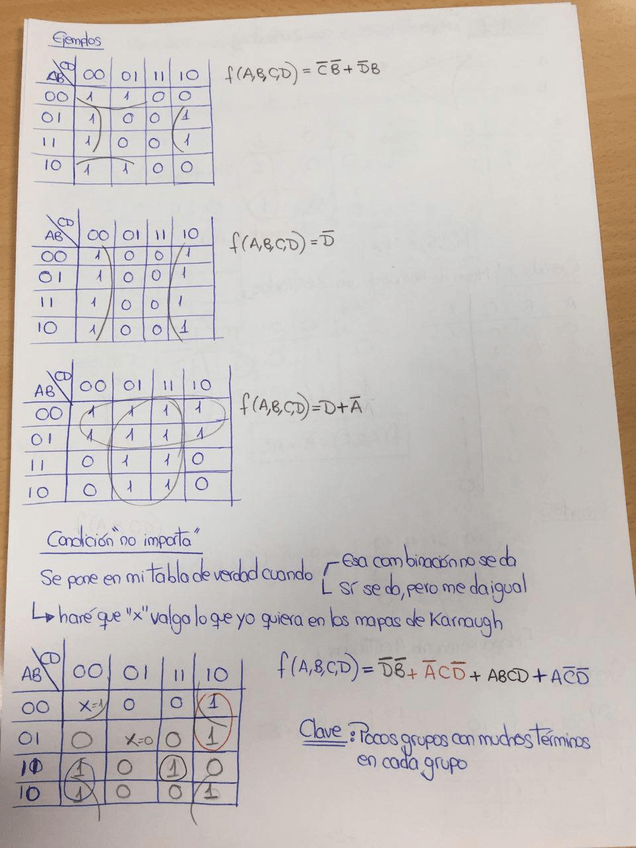 Ejemplos
AB CD 00 01 11 10
00 1 1 0 0
01 1 0 0 1
11 1 0 0 1
10 1 1 0 0
f(A,B,C,D) = C̅ B̅ + D̅ B
AB CD 00 01 11 10
00 1 0 0 1
01 1 0 0 1
11 1 0 0 1
10 1 0 0 1
f(A,B,C,D) = D̅
AB CD 00 01 11 10
00 1 1 1 1
01 1 1 1 1
11 0 1 1 0
10 0 1 1 0
f(A,B,C,D) = D + A̅
Condición "no importa"
Se pone en mi tabla de verdad cuando
Esa combinación no se da
Sí se da, pero me da igual
↳ haré que "x" valga lo que yo quiera en los mapas de Karnaugh
AB CD 00 01 11 10
00 x=1 0 0 1
01 0 x=0 0 1
11 1 0 1 0
10 1 0 0 1
f(A,B,C,D) = D̅B̅ + A̅CD̅ + ABCD + AC̅D̅
Clave: Pocos grupos con muchos términos
en cada grupo